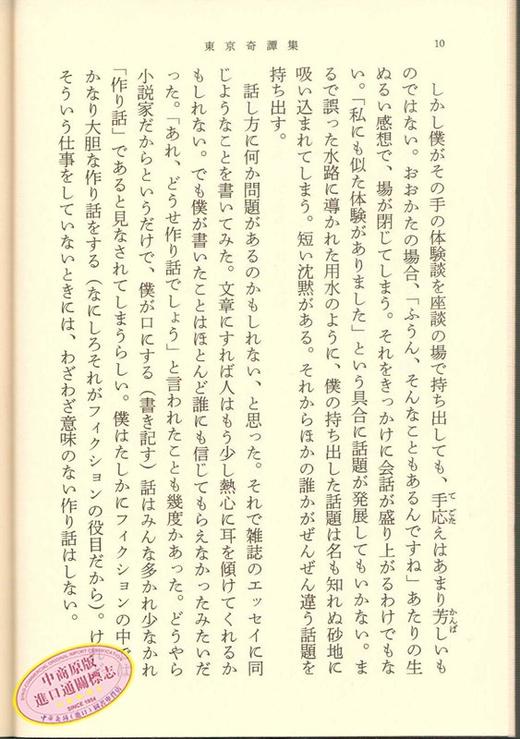 10
東京奇譚集
しかし僕がその手の体験談を座談の場で持ち出しても、手応えはあまり芳しいも
のではない。おおかたの場合、「ふうん、そんなこともあるんですね」あたりの生
ぬるい感想で、場が閉じてしまう。それをきっかけに会話が盛り上がるわけでもな
い。「私にも似た体験がありました」という具合に話題が発展してもいかない。ま
るで誤った水路に導かれた用水のように、僕の持ち出した話題は名も知れぬ砂地に
吸い込まれてしまう。短い沈黙がある。それからほかの誰かがぜんぜん違う話題を
持ち出す。
話し方に何か問題があるのかもしれない、と思った。それで雑誌のエッセイに同
じようなことを書いてみた。文章にすれば人はもう少し熱心に耳を傾けてくれるか
もしれない。でも僕が書いたことはほとんど誰にも信じてもらえなかったみたいだ
った。「あれ、どうせ作り話でしょう」と言われたことも幾度かあった。どうやら
小説家だからというだけで、僕が口にする（書き記す）話はみんな多かれ少なかれ
「作り話」であると見なされてしまうらしい。僕はたしかにフィクションの中で
かなり大胆な作り話をする（なにしろそれがフィクションの役目だから）。け
そういう仕事をしていないときには、わざわざ意味のない作り話はしない。
てごた
かんば
中商原版
進口通關標志
SINCE 1984